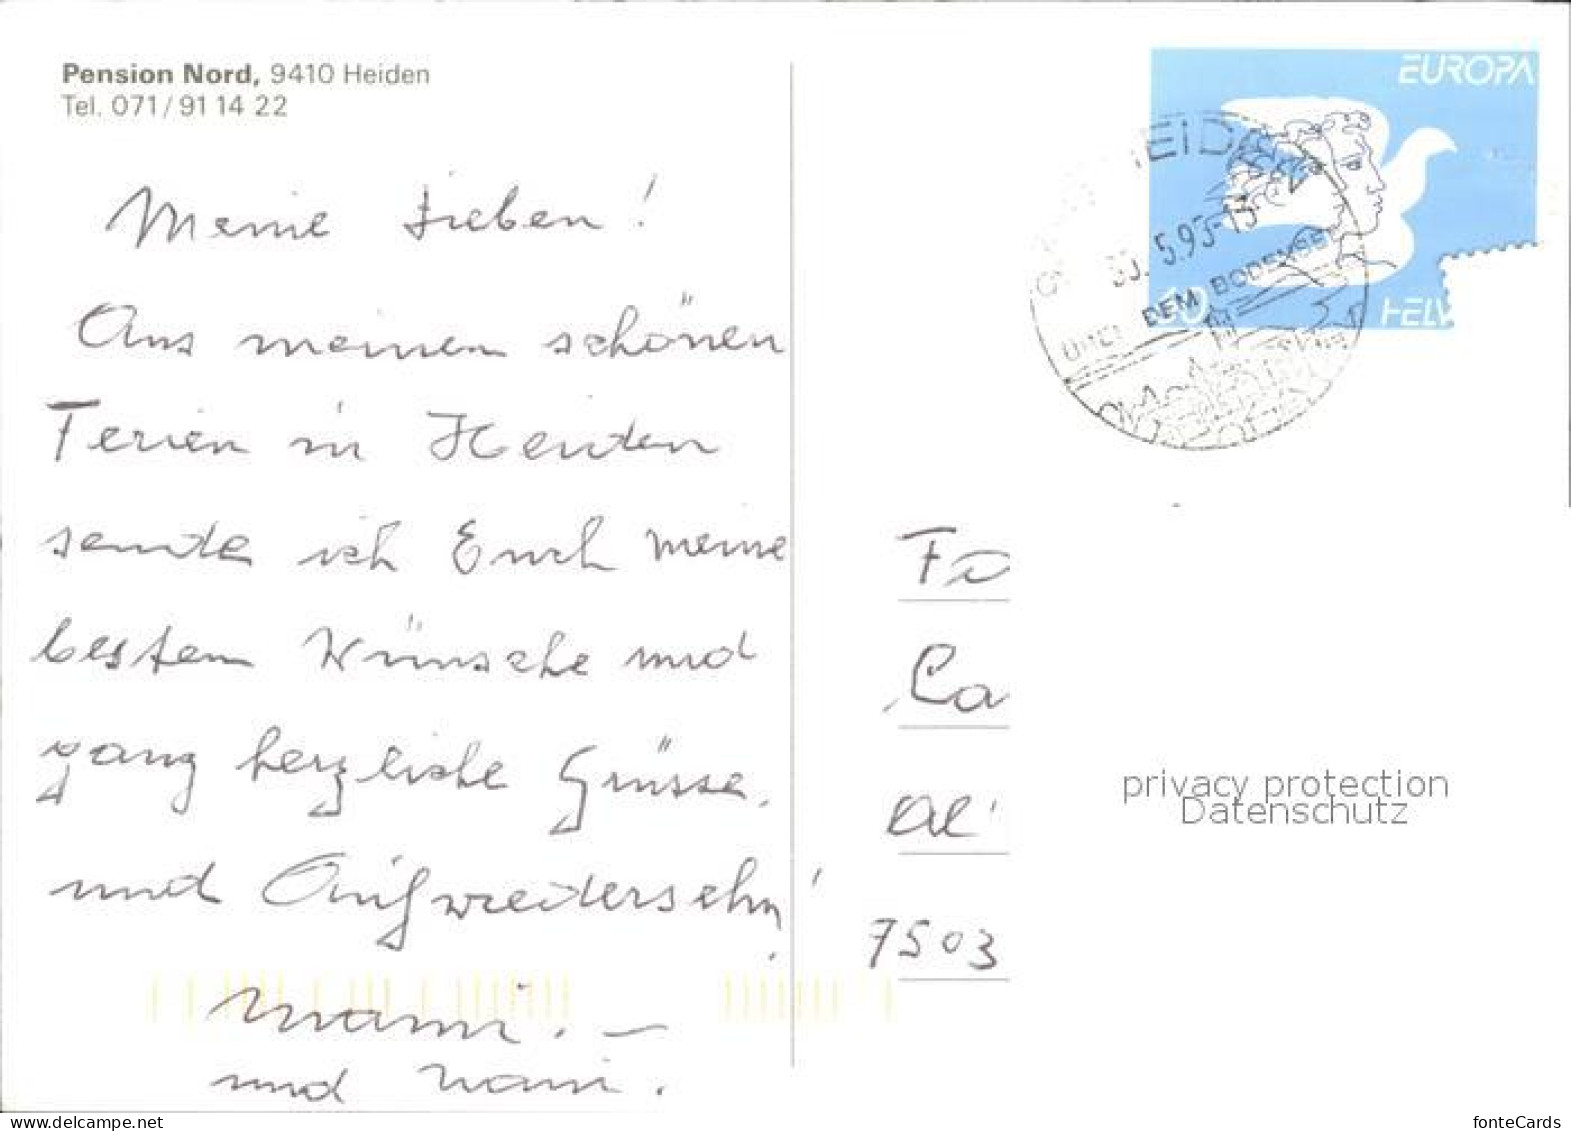 Pension Nord, 9410 Heiden
Tel. 071/91 14 22
Meine Lieben!
Aus meinen schönen
Ferien in Heiden
sende ich Euch meine
besten Wünsche und
ganz herzliche Grüsse,
und Aufwiedersehn!
Mami. –
und Nani.
EUROPA
HELV
EID
5.95-15
DEM BODENSEE
Fa
Ca
7503
privacy protection
Datenschutz
fonteCards
www.delcampe.net